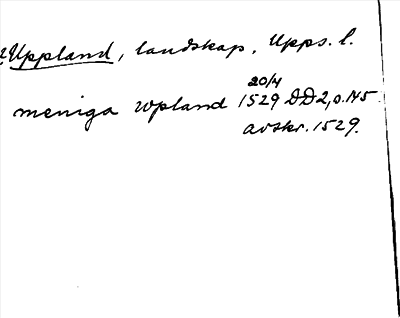 Uppland, landskap, Upps. l.
20/4
meniga Wpland 1529 DD2,o.145.
avskr. 1529.